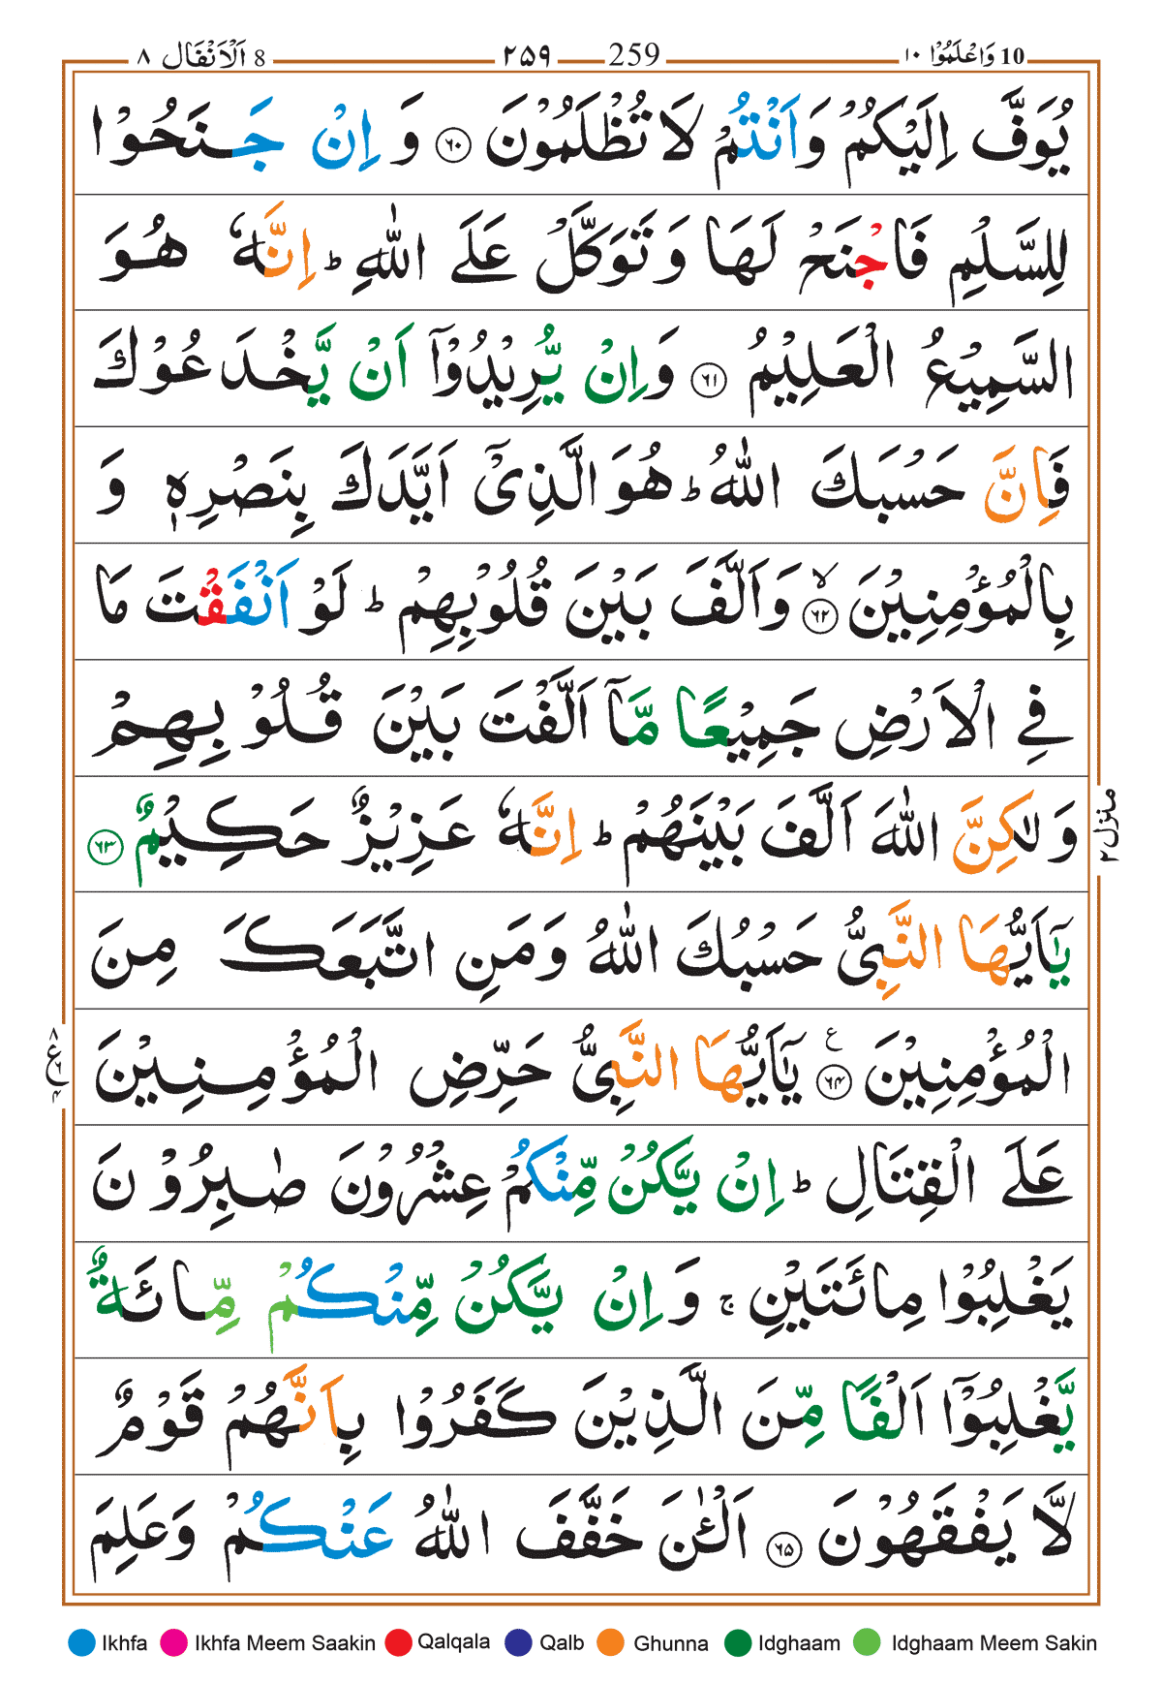 10 وَاعْلَمُوْا ١٠ 259 ۲۵۹ 8 اَلْاَنْفَال ٨
يُوَفَّ اِلَيْكُمْ وَاَنْتُمْ لَا تُظْلَمُوْنَ ﴿۶۰﴾ وَ اِنْ جَـنَحُوْا
لِلسَّلْمِ فَاجْنَحْ لَهَا وَ تَوَكَّلْ عَلَى اللّٰهِ ؕ اِنَّهٗ هُوَ
السَّمِيْعُ الْعَلِيْمُ ﴿۶۱﴾ وَاِنْ يُّرِيْدُوْۤا اَنْ يَّخْدَعُوْكَ
فَاِنَّ حَسْبَكَ اللّٰهُ ؕ هُوَ الَّذِىْۤ اَيَّدَكَ بِنَصْرِهٖ وَ
بِالْمُؤْمِنِيْنَ ۙ﴿۶۲﴾ وَاَلَّفَ بَيْنَ قُلُوْبِهِمْ ؕ لَوْ اَنْفَقْتَ مَا
فِى الْاَرْضِ جَمِيْعًا مَّاۤ اَلَّفْتَ بَيْنَ قُلُوْبِهِمْ
وَ لٰكِنَّ اللّٰهَ اَلَّفَ بَيْنَهُمْ ؕ اِنَّهٗ عَزِيْزٌ حَكِيْمٌ ﴿۶۳﴾
يٰۤاَيُّهَا النَّبِىُّ حَسْبُكَ اللّٰهُ وَمَنِ اتَّبَعَكَ مِنَ
الْمُؤْمِنِيْنَ ﴿۶۴﴾ ع يٰۤاَيُّهَا النَّبِىُّ حَرِّضِ الْمُؤْمِنِيْنَ
عَلَى الْقِتَالِ ؕ اِنْ يَّكُنْ مِّنْكُمْ عِشْرُوْنَ صٰبِرُوْنَ
يَغْلِبُوْا مِائَتَيْنِ ۚ وَ اِنْ يَّكُنْ مِّنْكُمْ مِّائَةٌ
يَّغْلِبُوْۤا اَلْفًا مِّنَ الَّذِيْنَ كَفَرُوْا بِاَنَّهُمْ قَوْمٌ
لَّا يَفْقَهُوْنَ ﴿۶۵﴾ اَلْـٰٔنَ خَفَّفَ اللّٰهُ عَنْكُمْ وَعَلِمَ
منزل ۲
Ikhfa Ikhfa Meem Saakin Qalqala Qalb Ghunna Idghaam Idghaam Meem Sakin